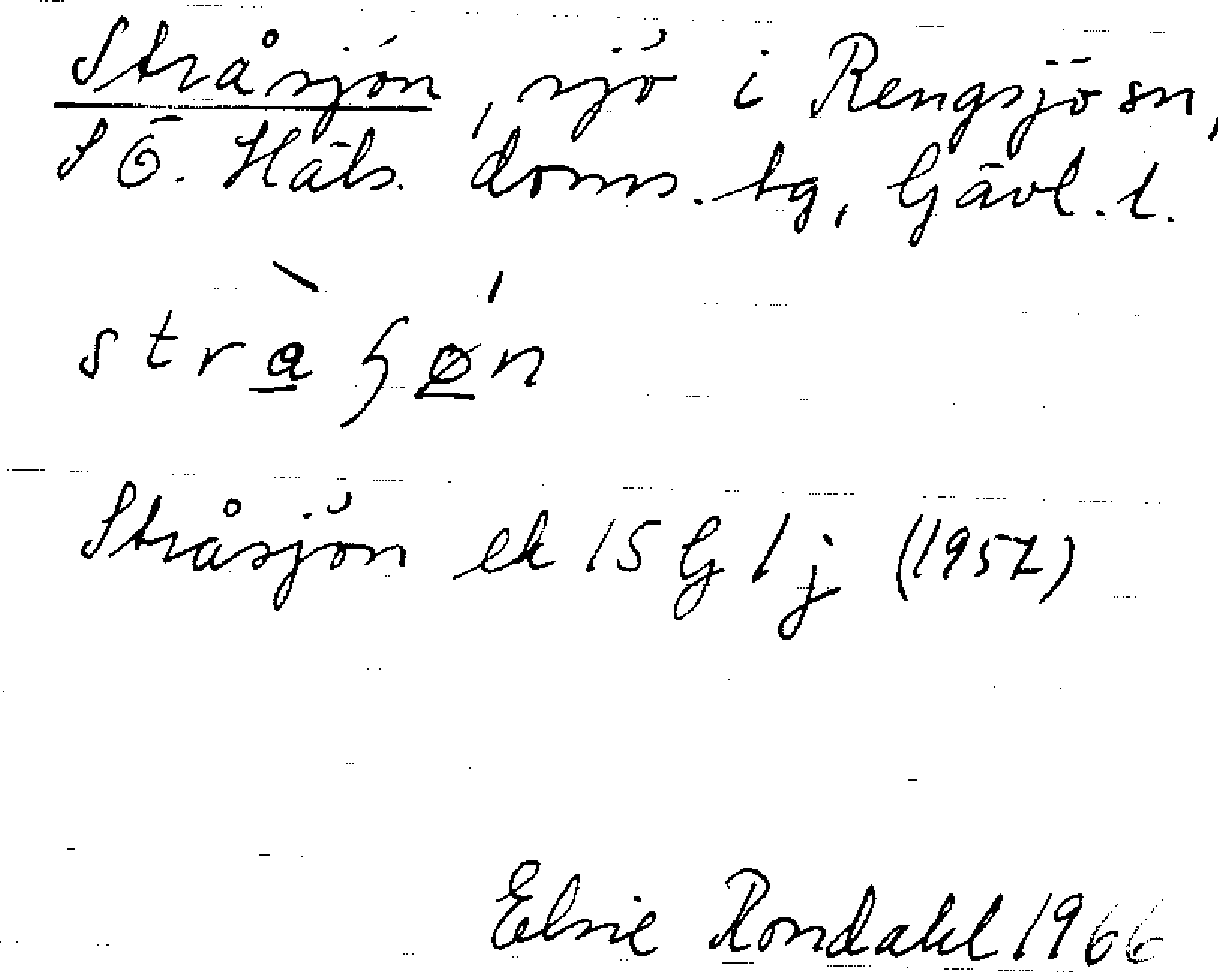 Stråsjön, sjö i Rengsjö sn,
S Ö. Häls. doms. tg, Gävl. l.
Stråsjön ek 15 G 1 j (1957)
Elsie Rondahl 1966